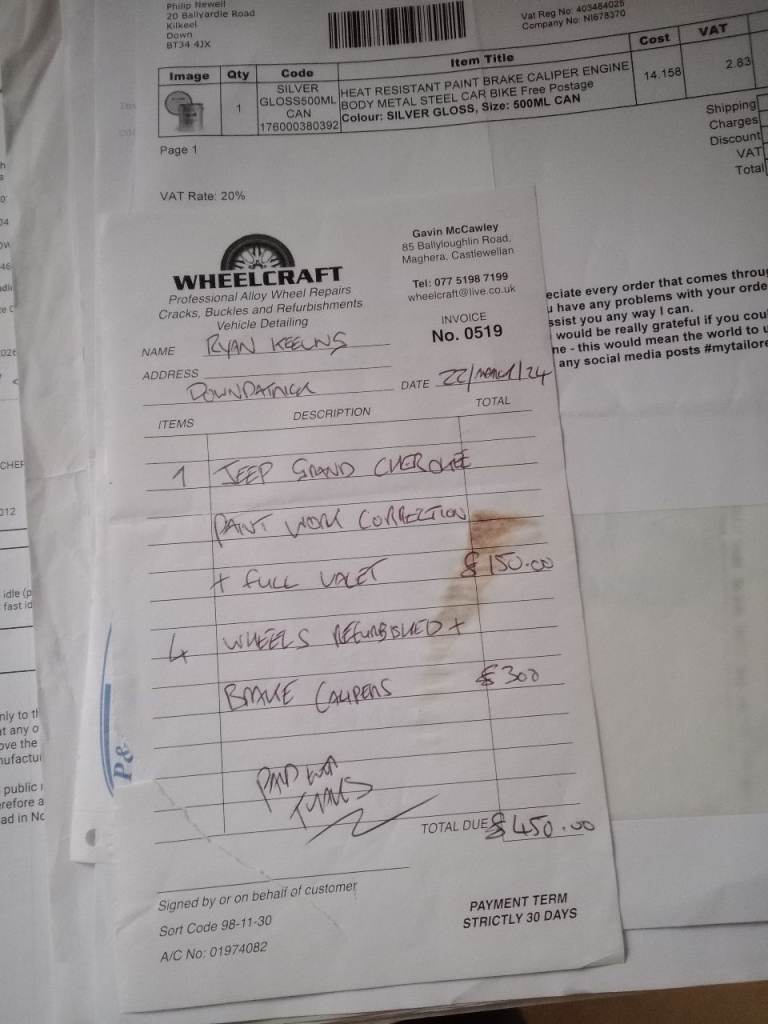 Philip Newell
20 Ballyardle Road
Kilkeel
Down
BT34 4JX
Vat Reg No: 403464025
Company No: NI678370
Image Qty Code Item Title Cost VAT
1 SILVER GLOSS500ML CAN 176000380392 HEAT RESISTANT PAINT BRAKE CALIPER ENGINE BODY METAL STEEL CAR BIKE Free Postage 14.158 2.83
Colour: SILVER GLOSS, Size: 500ML CAN
Page 1
Shipping
Charges
Discount
VAT
Total
VAT Rate: 20%
eciate every order that comes throu
have any problems with your orde
ssist you any way I can.
would be really grateful if you cou
ne - this would mean the world to u
any social media posts #mytailore
WHEELCRAFT
Professional Alloy Wheel Repairs
Cracks, Buckles and Refurbishments
Vehicle Detailing
Gavin McCawley
85 Ballyloughlin Road,
Maghera, Castlewellan
Tel: 077 5198 7199
wheelcraft@live.co.uk
INVOICE
No. 0519
NAME RYAN
ADDRESS DOWNPATRICK
DATE 22/MARCH/24
ITEMS DESCRIPTION TOTAL
1 JEEP GRAND CHEROKEE
PAINT WORK CORRECTION
+ FULL VALET £150.00
4 WHEELS REFURBISHED +
BRAKE CALIPERS £300
PAID
THANKS
TOTAL DUE £450.00
Signed by or on behalf of customer
Sort Code 98-11-30
A/C No: 01974082
PAYMENT TERM
STRICTLY 30 DAYS
P&
idle (p
fast id
nly to th
at any o
ove the
nufactu
public
refore a
ad in No